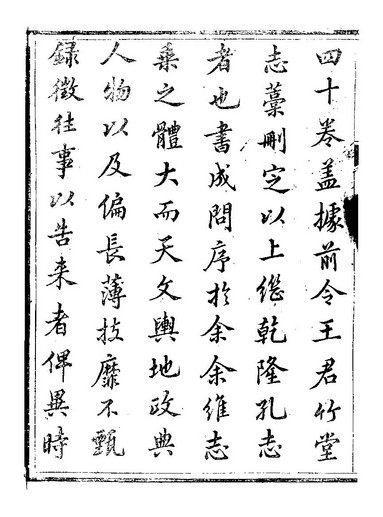 四十卷蓋據前令王君竹堂
志藁刪定以上繼乾隆孔志
者也書成問序於余余維志
乘之體大而天文輿地政典
人物以及偏長薄技靡不甄
録徵往事以告来者俾異時